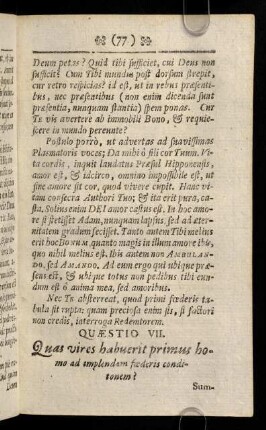 (77)
Deum petas? Quid tibi sufficiet, cui Deus non
sufficit? Cum Tibi mundus post dorsum strepit,
cur retro respicias? id est, ut in rebus præsenti-
bus, nec præsentibus (non enim dicenda sunt
præsentia, nunquam stantia) spem ponas. Cur
Te vis avertere ab immobili Bono, & requie-
scere in mundo perennte?
Postulo porrò, ut advertas ad suavissimas
Plasmatoris voces; Da mihi ô fili cor Tuum. Vi-
ta cordis, inquit laudatus Præsul Hipponensis,
amor est, & idcirco, omnino impossibile est, ut
sine amore sit cor, quod vivere cupit. Hanc vi-
tam consecra Authori Tuo; & ita erit pura, ca-
sta. Solius enim DEI amor castus est. In hoc amo-
re si stetisset Adam, nunquam lapsus, sed ad æter-
nitatem gradum fecisset. Tanto autem Tibi melius
erit hoc BONUM, quanto magis in illum amore ibis,
quo nihil melius est. Ibis autem non AMBULAN-
DO, sed AMANDO. Ad eum ergo qui ubique præ-
sens est, & ubique totus non pedibus tibi eun-
dum est ô anima mea, sed amoribus.
Nec Te absterreat, quod primi fœderis ta-
bula sit rupta: quam preciosa enim sis, si factori
non credis, interroga Redemtorem.
QUÆSTIO VII.
Quas vires habuerit primus ho-
mo ad implendam fœderis condi-
tionem?
Sum-